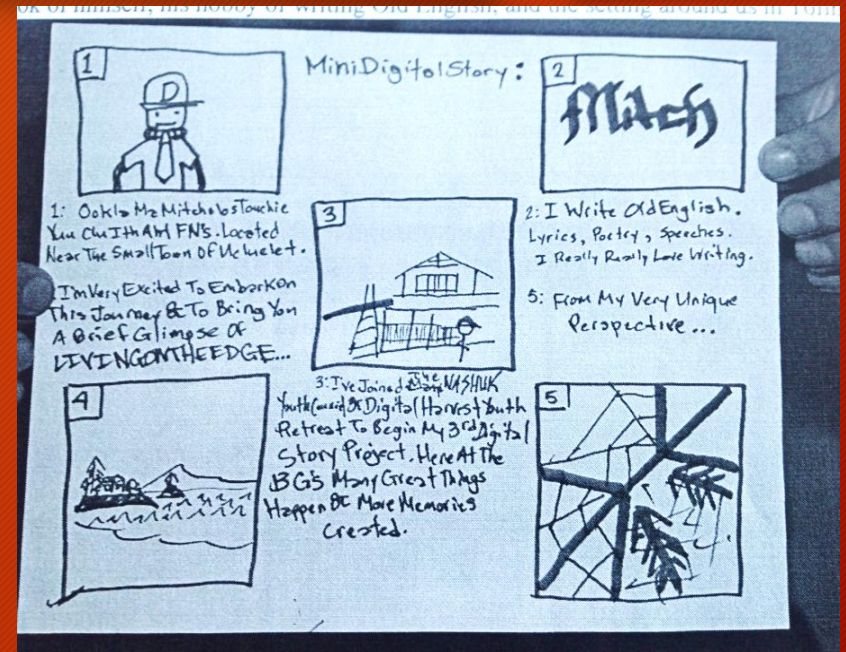 ok of himself, his hobby of writing Old English, and the setting around us in Tofi
Mini Digital Story:
1
2
Mitch
1: Ookla Mz Mitcholos Touchie
Yuu Cluithaht FN's. Located
Near The Small Town Of Ucluelet.
I'm Very Excited To Embark on
This Journey & To Bring You
A Brief Glimpse Of
LIVINGONTHEEDGE...
3
2: I Write Old English.
Lyrics, Poetry, Speeches.
I Really Really Love Writing.
5: From My Very Unique
Perspective...
3: I've Joined The NASHUK
Youth Council & Digital Harvest Youth
Retreat To Begin My 3rd Digital
Story Project. Here At The
BG's Many Great Things
Happen & More Memories
Created.
4
5
D